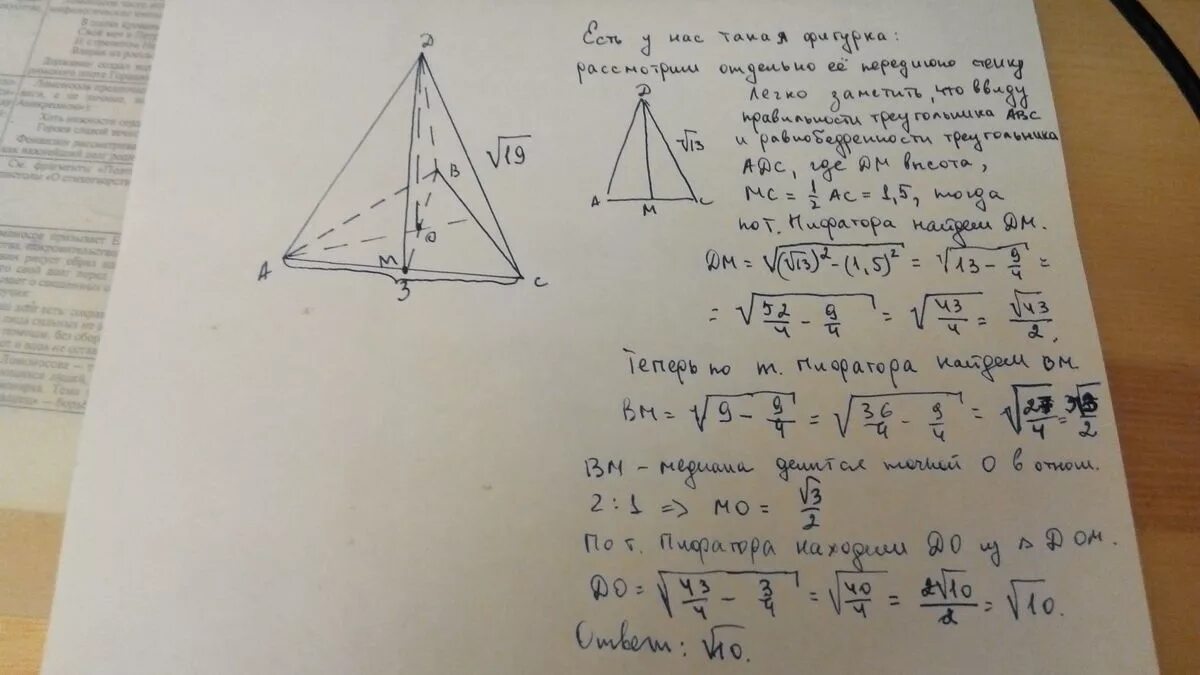 В полях кровавых
Ломоносов
Есть у нас такая фигурка:
рассмотрим отдельно её переднюю стенку
Легко заметить, что ввиду
правильности треугольника ABC
и равнобедренности треугольника
ADC, где DM высота,
MC = 1/2 AC = 1,5, тогда
по т. Пифагора найдем DM.
D
√19
B
O
A
M
3
C
D
√13
A
M
C
DM = √((√13)² - (1,5)²) = √(13 - 9/4) =
= √(52/4 - 9/4) = √(43/4) = √43/2,
Теперь по т. Пифагора найдем BM
BM = √(9 - 9/4) = √(36/4 - 9/4) = √(27/4) = 3√3/2
BM - медиана делится точкой O в отнош.
2 : 1 => MO = √3/2
По т. Пифагора находим DO из △ DOM.
DO = √(43/4 - 3/4) = √(40/4) = 2√10/2 = √10.
Ответ: √10.